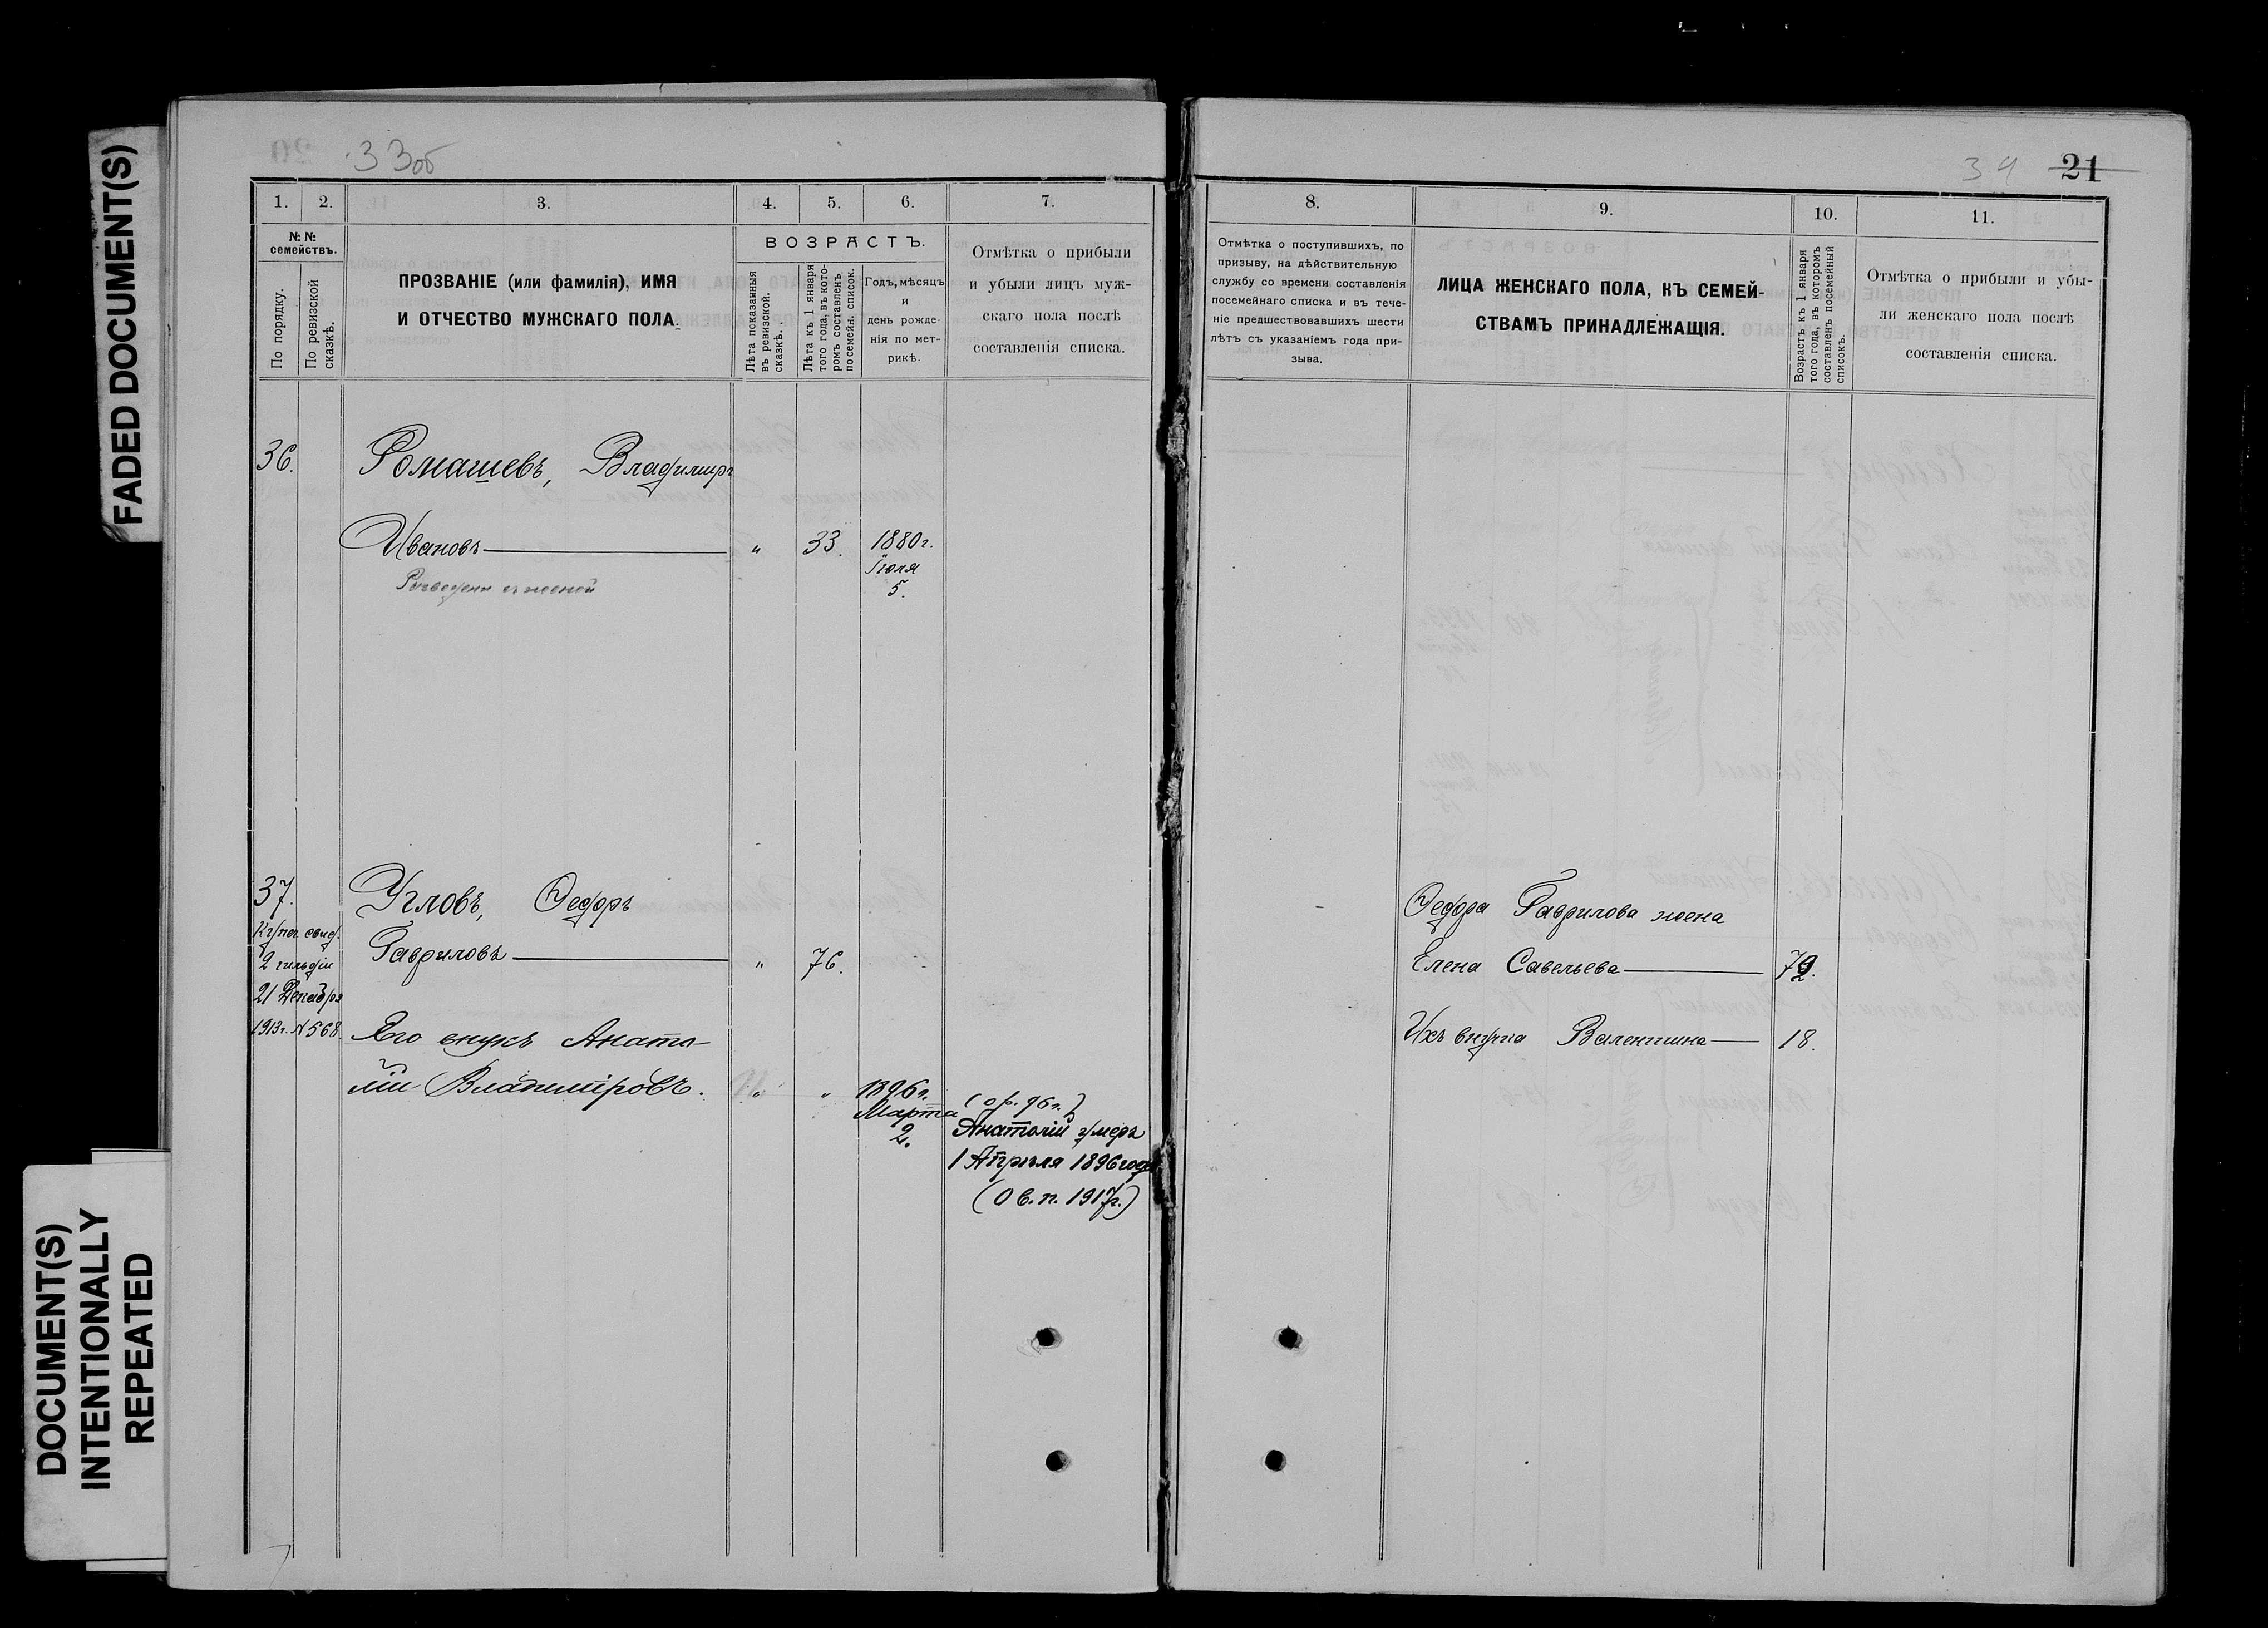 FADED DOCUMENT(S)
DOCUMENT(S)
INTENTIONALLY
REPEATED
33об
1.
2.
3.
4.
5.
6.
7.
№ №
семействъ.
По порядку.
По ревизской
сказкѣ.
ПРОЗВАНІЕ (или фамилія), ИМЯ
И ОТЧЕСТВО МУЖСКАГО ПОЛА.
ВОЗРАСТЪ.
Лѣта показанныя
въ ревизской.
сказкѣ.
Лѣта къ 1 января
того года, въ кото-
ромъ составленъ
посемейн. списокъ.
Годъ, мѣсяцъ
и
день рожде-
нія по мет-
рикѣ.
Отмѣтка о прибыли
и убыли лицъ муж-
скаго пола послѣ
составленія списка.
36.
Ромашевъ, Владимиръ
Ивановъ
"
33.
1880г.
Іюля
5.
Разведенъ съ женой
37.
Купеч. свид.
2 гильдіи
21 Декабря
1913г. № 568.
Угловъ, Федоръ
Гавриловъ
"
76.
Его внукъ Анато-
лій Владиміровъ.
"
"
1896г.
Марта
2.
(ор. 96г.)
Анатолій умеръ
1 Апрѣля 1896года
(О в. п. 1917г.)
34 21
8.
9.
10.
11.
Отмѣтка о поступившихъ, по
призыву, на дѣйствительную
службу со времени составленія
посемейнаго списка и въ тече-
ніе предшествовавшихъ шести
лѣтъ съ указаніемъ года при-
зыва.
ЛИЦА ЖЕНСКАГО ПОЛА, КЪ СЕМЕЙ-
СТВАМЪ ПРИНАДЛЕЖАЩІЯ.
Возрастъ къ 1 января
того года, въ которомъ
составленъ посемейный
списокъ.
Отмѣтка о прибыли и убы-
ли женскаго пола послѣ
составленія списка.
Федора Гаврилова жена
Елена Савельева
72.
Ихъ внучка Валентина
18.